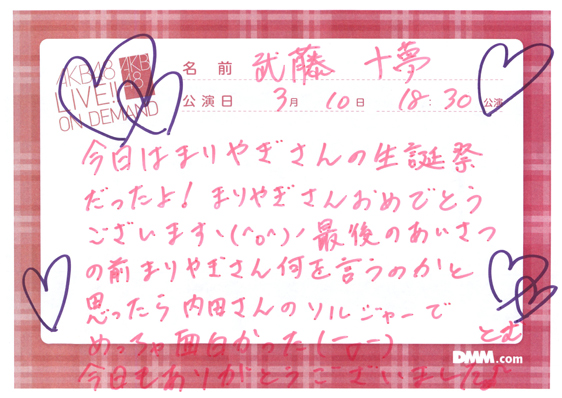 AKB48
LIVE!!
ON DEMAND
AKB
48
名前 武藤 十夢
公演日 3月 10日 18:30 公演
今日はまりやぎさんの生誕祭
だったよ! まりやぎさんおめでとう
ございますヽ(^o^)ノ最後のあいさつ
の前まりやぎさん何を言うのかと
思ったら内田さんのソルジャーで
めっちゃ面白かった(-_-)
とむ
今日もありがとうございました♪
DMM.com